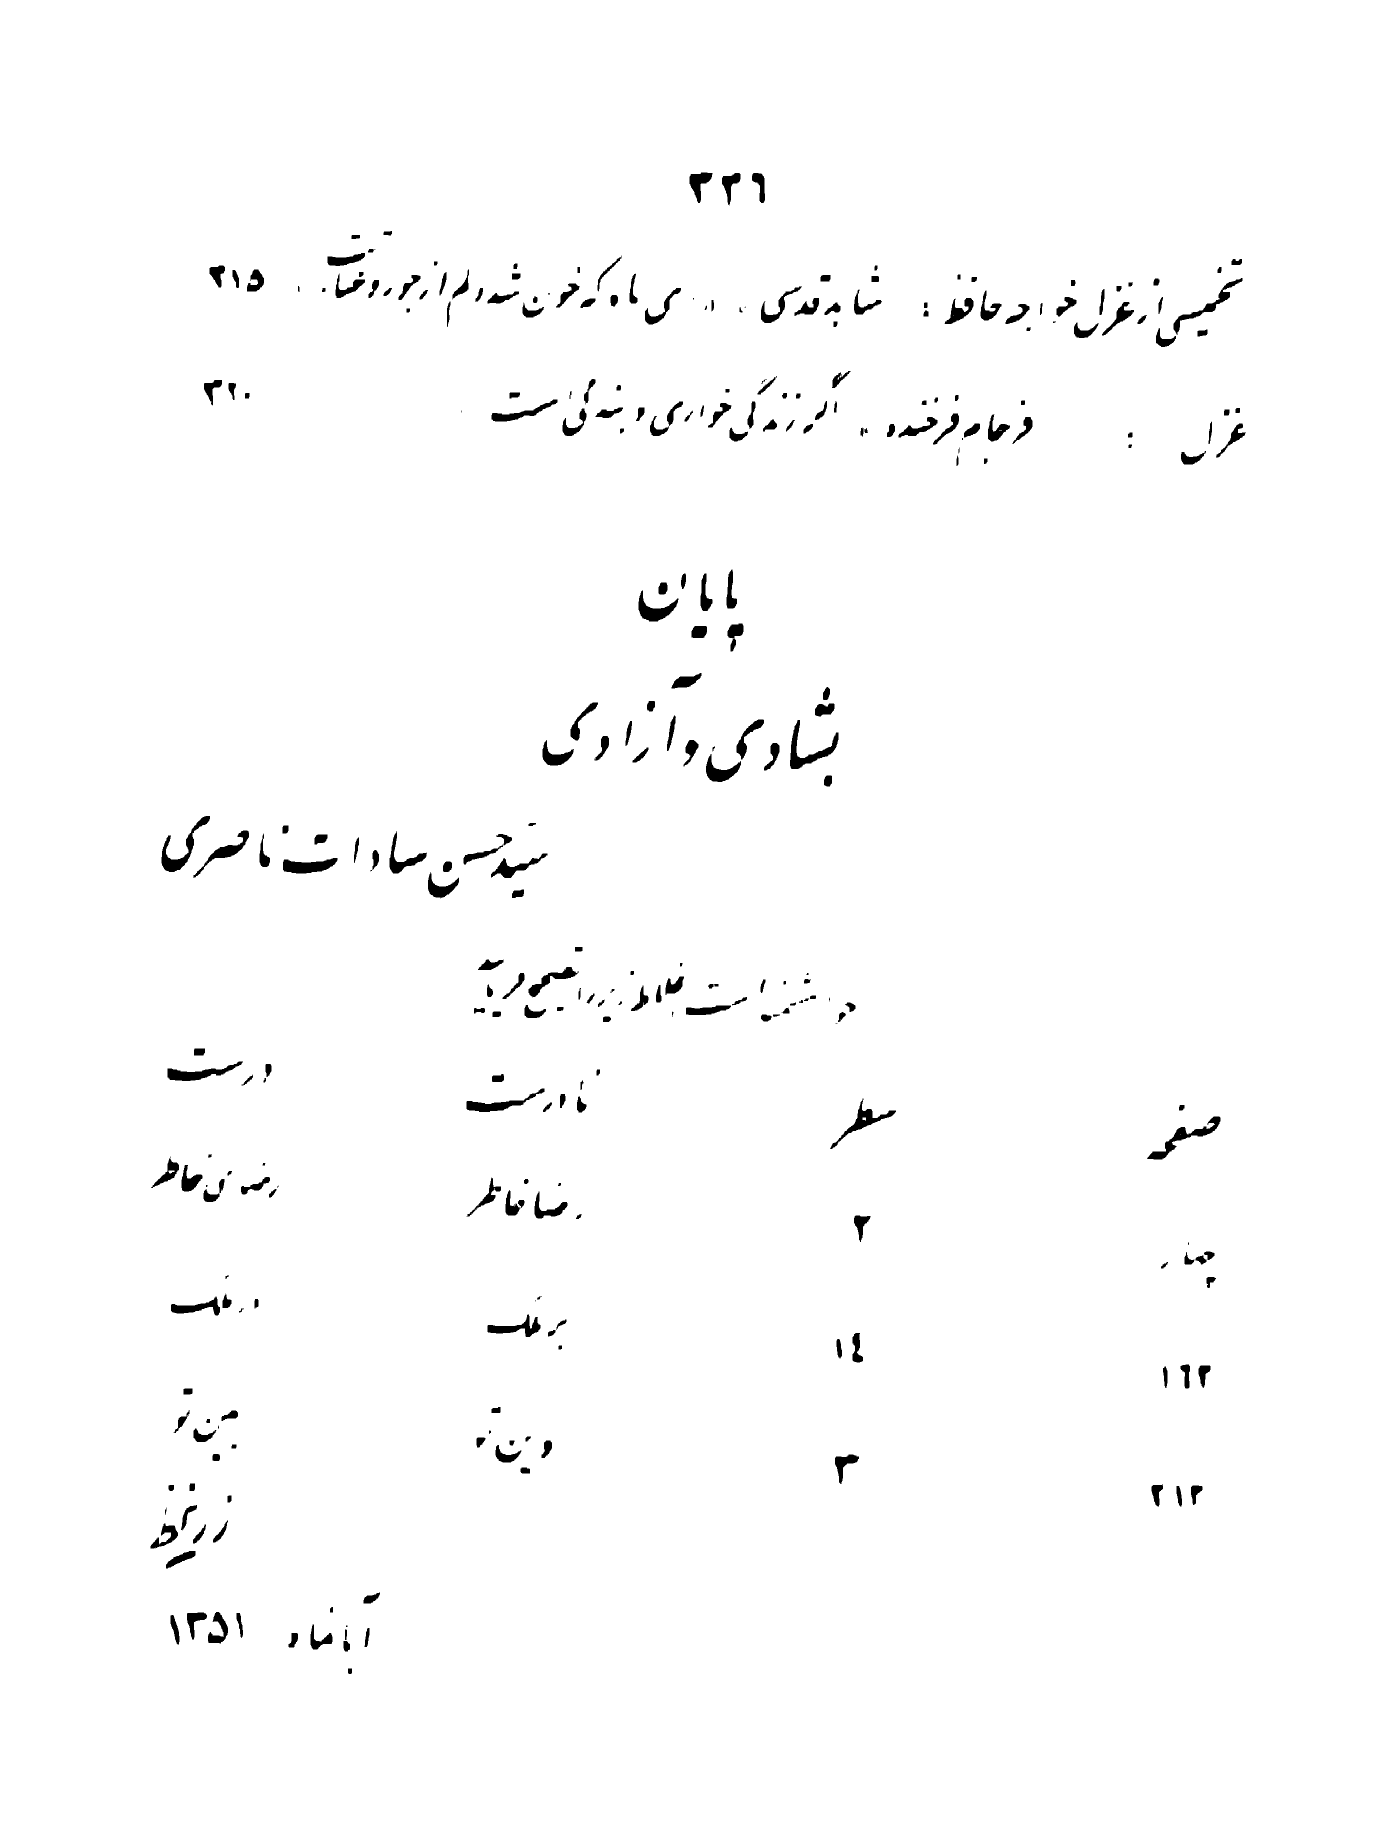 ۳۲۶
تخمیسی از غزل خواجه حافظ : شاهد قدسی « ... ای ماه که خون شد دلم از جور و عتابت » ۳۱۵
غزل : فرجام فرخنده « اگر زندگی خواری و بندگی است » ۳۲۰
پایان
بشادی و آزادی
سید حسن سادات ناصری
خواهشمند است اغلاط زیر را تصحیح فرمایید
صفحه سطر نادرست درست
چهار ۲ رضا خاطر رضای خاطر
۱۶۲ ۱۴ بر فلک در فلک
۲۱۲ ۳ و ین تو بین تو
زرین‌خط
آبانماه ۱۳۵۱